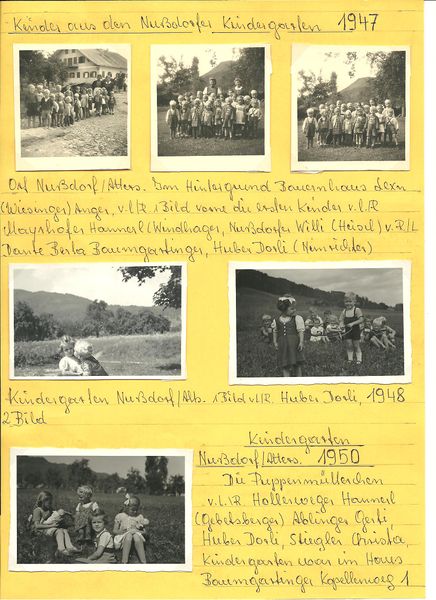 Kinder aus den Nußdorfer Kindergarten 1947
Ort Nußdorf/Atters. Im Hintergrund Bauernhaus Lexn
(Wiesinger) Anger, v.l/R. 1Bild vorne die ersten Kinder v.l.R
Mayrhofer Hannerl (Windhager, Nußdorfer Willi (Heisel) v.R/L
Dante Berta Baumgartinger, Huber Dorli (Neinrichter)
Kindergarten Nußdorf/Att. 1Bild v.l/R. Huber Dorli, 1948
2Bild
Kindergarten
Nußdorf/Atters. 1950
Die Puppenmütterchen
v.l.R. Hollerweger Hannerl
(Gebetsberger) Ablinger Gerti,
Huber Dorli, Stiegler Christa,
Kindergarten war im Haus
Baumgartinger Kapellenweg 1